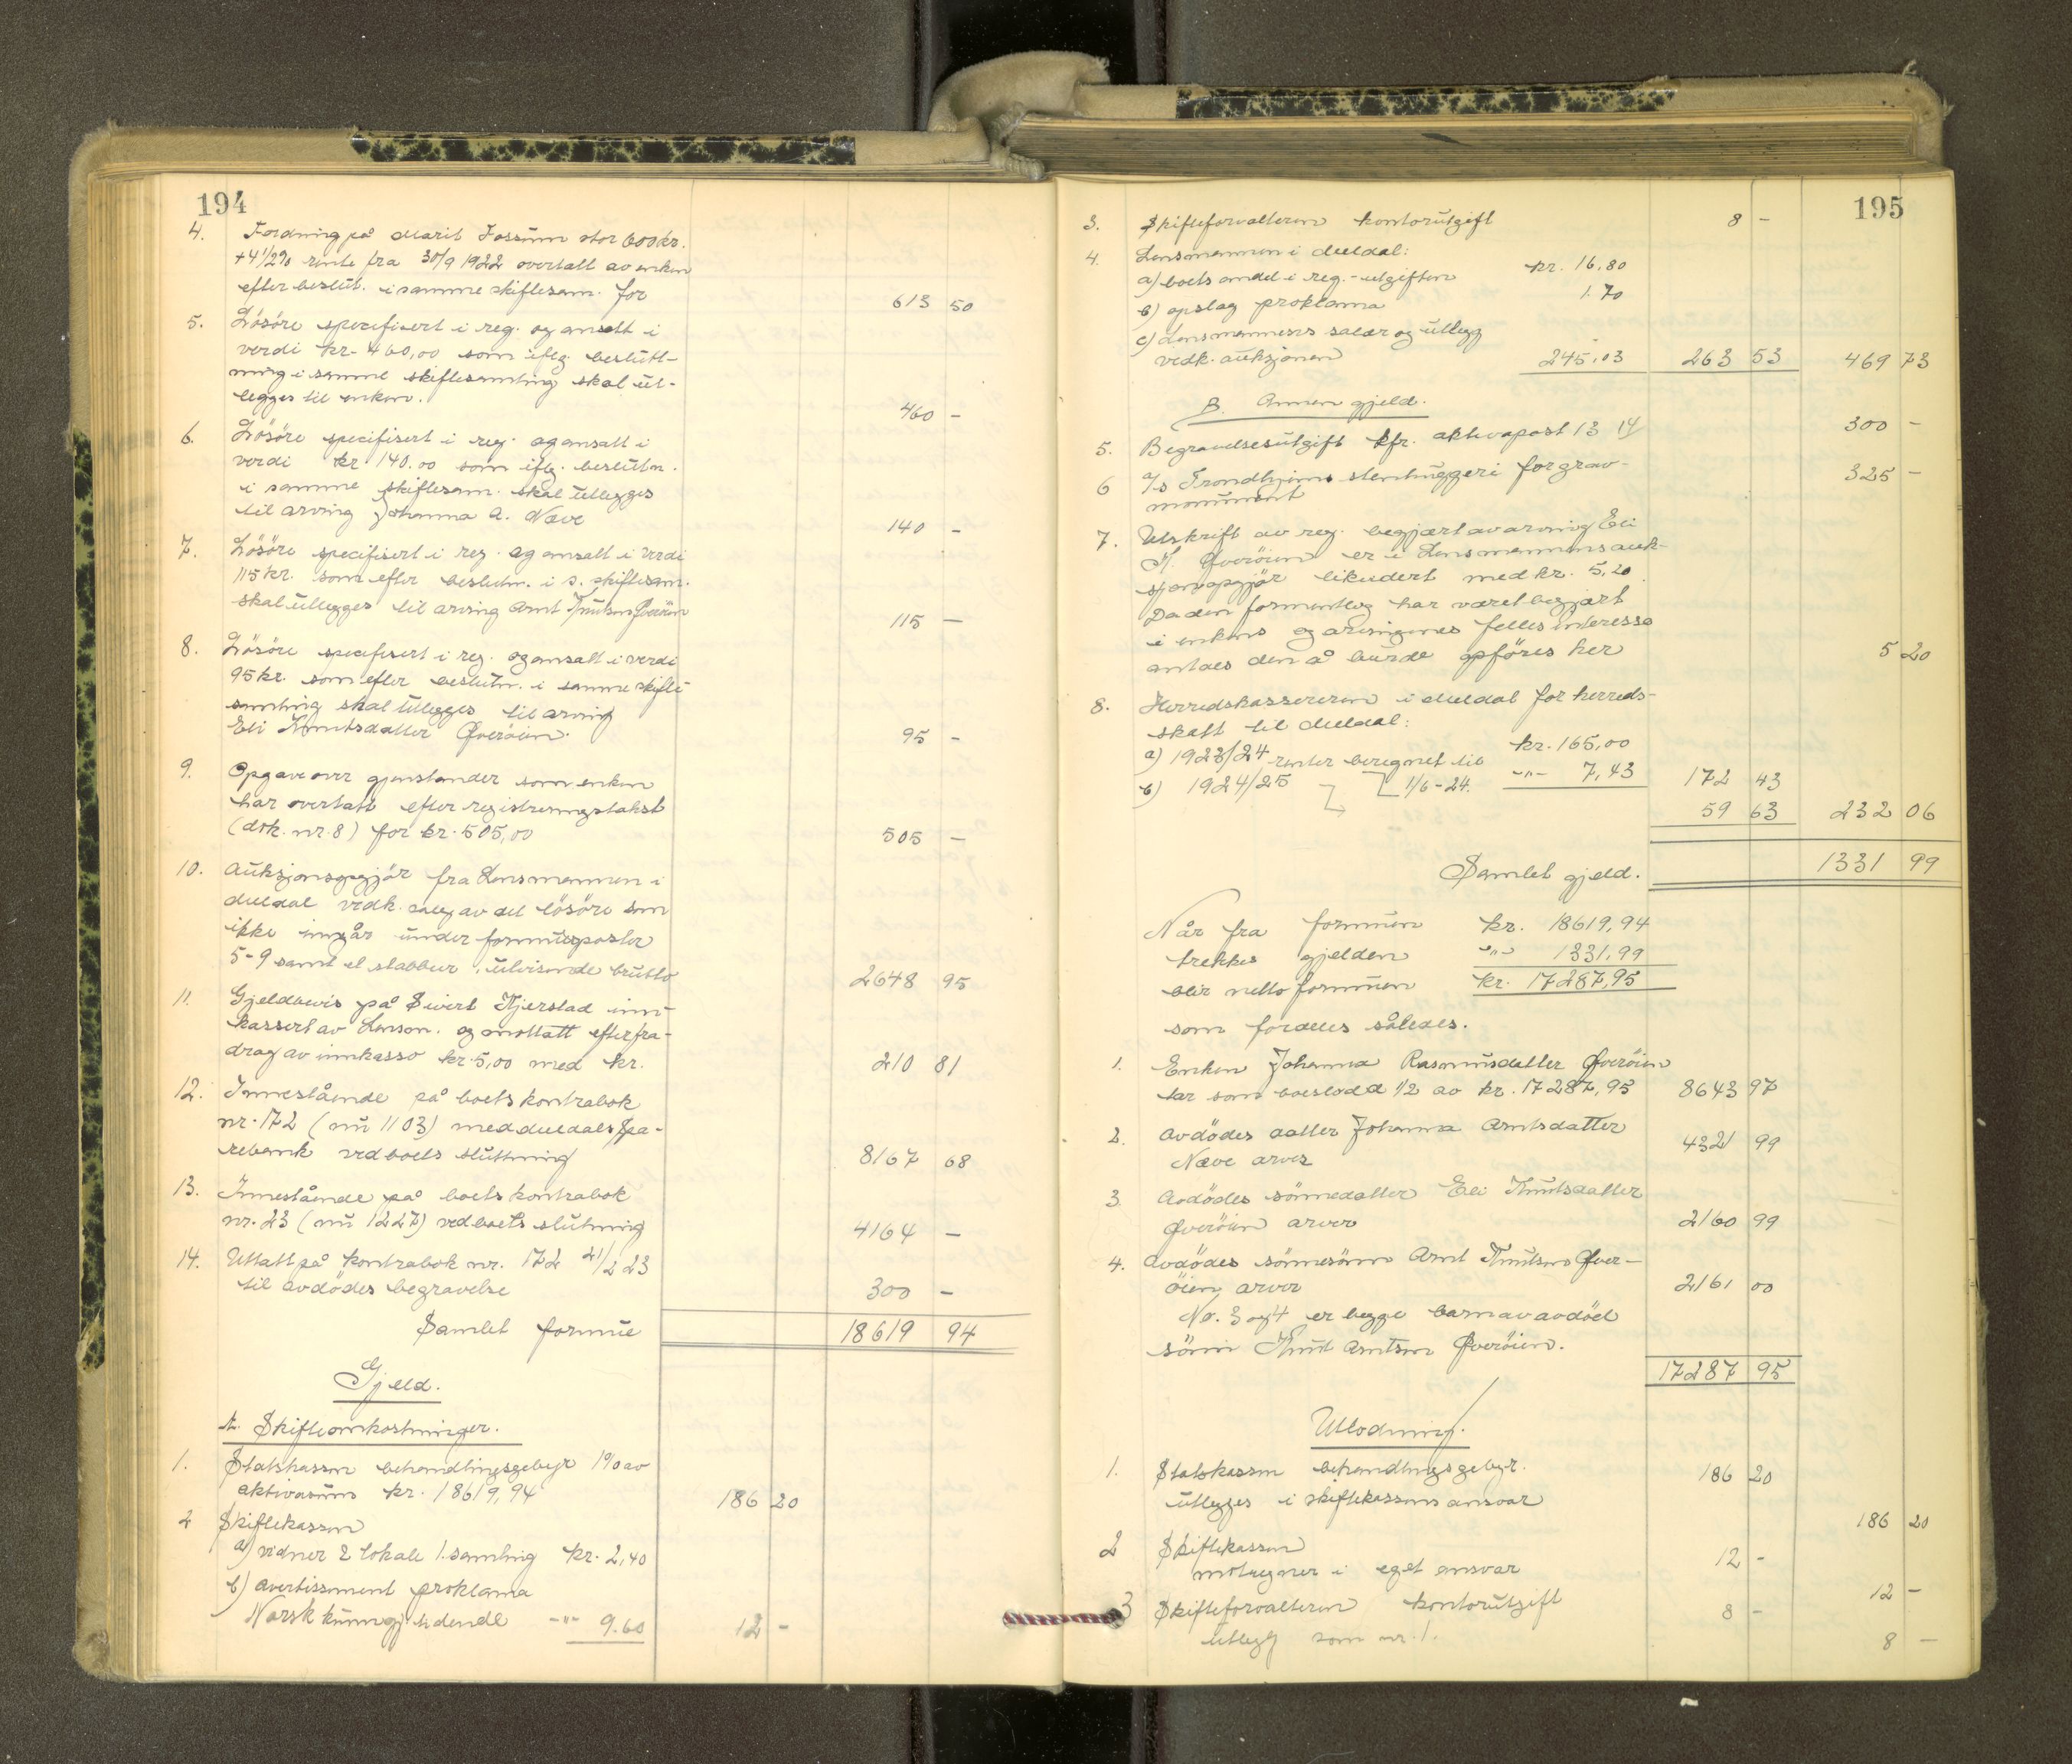 194
4. Fordring på Marit Fossum stor 600 kr.
+ 4 1/2 % rente fra 30/9 1922 overtatt av enken
efter beslut. i samme skiftesam. for 613 50
5. Lösöre specifisert i reg. og ansatt i
verdi kr. 460,00 som iflg. beslutt-
ning i samme skiftesamling skal ut-
legges til enken. 460 -
6. Lösöre specifisert i reg. og ansatt i
verdi kr 140.00 som iflg. beslutn.
i samme skiftesam. skal utlegges
til arving Johanna A. Næve 140 -
7. Lösöre specifisert i reg. og ansatt i verdi
115 kr. som efter beslutn. i s. skiftesam.
skal utlegges til arving Arnt Knutsen Qveröien 115 -
8. Lösöre specifisert i reg. og ansatt i verdi
95 kr. som efter beslutn. i samme skifte
samling skal utlegges til arving
Eli Knutsdatter Qveröien. 95 -
9. Opgave over gjenstander som enken
har overtatt efter registreringstakst
(dok. nr. 8) for kr. 505,00 505 -
10. Auksjonsopgjör fra Lensmannen i
Meldal vedk. salg av det lösöre som
ikke inngår under formuesposter
5-9 samt et stabbur, utvisende brutto 2648 95
11. Gjeldbevis på Sivert Kjerstad inn-
kassert av Lensm. og mottatt efter fra-
drag av innkasso kr. 5,00 med kr. 210 81
12. Innestående på boets kontrabok
nr. 172 (nu 1103) med Meldals Spa-
rebank ved boets sluttning 8167 68
13. Innestående på boets kontrabok
nr. 23 (nu 1227) ved boets slutning 4164 -
14. Uttatt på kontrabok nr. 172 21/2 23
til avdödes begravelse 300 -
Samlet formue 18619 94
Gjeld.
A. Skifteomkostninger.
1. Statskassen behandlingsgebyr 1% av
aktivasum kr. 18619,94 186 20
2 Skiftekassen
a) vidner & lokale 1. samling kr. 2,40
b) avertissement proklama
Norsk kunngj. tidende -"- 9.60 12 -
195
3. Skifteforvalteren kontorutgift 8 -
4. Lensmannen i Meldal:
a) boets andel i reg.-utgiften kr. 16,80
b) opslag proklama 1.70
c) Lensmannens salær og utlegg
vedk. auksjonen 245,03 263 53 469 73
B. Annen gjeld.
5. Begravelsesutgift kfr. aktivapost 13 14 300 -
6 A/s Trondhjems stenhuggeri for grav-
monument 325 -
7. Utskrift av reg. begjært av arving Eli
K. Qveröien er i Lensmannens auk-
sjonsopgjör likvidert med kr. 5,20.
Da den formentlig har været begjært
i enkens og arvingenes felles interesse
antaes den å burde opföres her 5 20
8. Herredskassereren i Meldal for herreds-
skatt til Meldal:
a) 1923/24 kr. 165,00
renter beregnet til 1/6-24. -"- 7,43 172 43
b) 1924/25 59 63 232 06
Samlet gjeld. 1331 99
Når fra formuen kr. 18619,94
trekkes gjelden -"- 1331,99
blir netto formuen kr. 17287,95
som fordeles således.
1. Enken Johanna Rasmusdatter Qveröien
tar som boeslodd 1/2 av kr. 17287,95 8643 97
2. Avdödes datter Johanna Arntsdatter
Næve arver 4321 99
3. Avdödes sönnedatter Eli Knutsdatter
Qveröien arver 2160 99
4. Avdödes sönnesönn Arnt Knutsen Qver-
öien arver 2161 00
Nr. 3 og 4 er begge barn av avdöd
sönn Knut Arntsen Qveröien.
17287 95
Utlodning.
1. Statskassen behandlingsgebyr. 186 20
utlegges i skiftekassens ansvar 186 20
2 Skiftekassen
motregner i eget ansvar 12 - 12 -
3 Skifteforvalteren kontorutgift 8 -
utlegg som nr. 1. 8 -